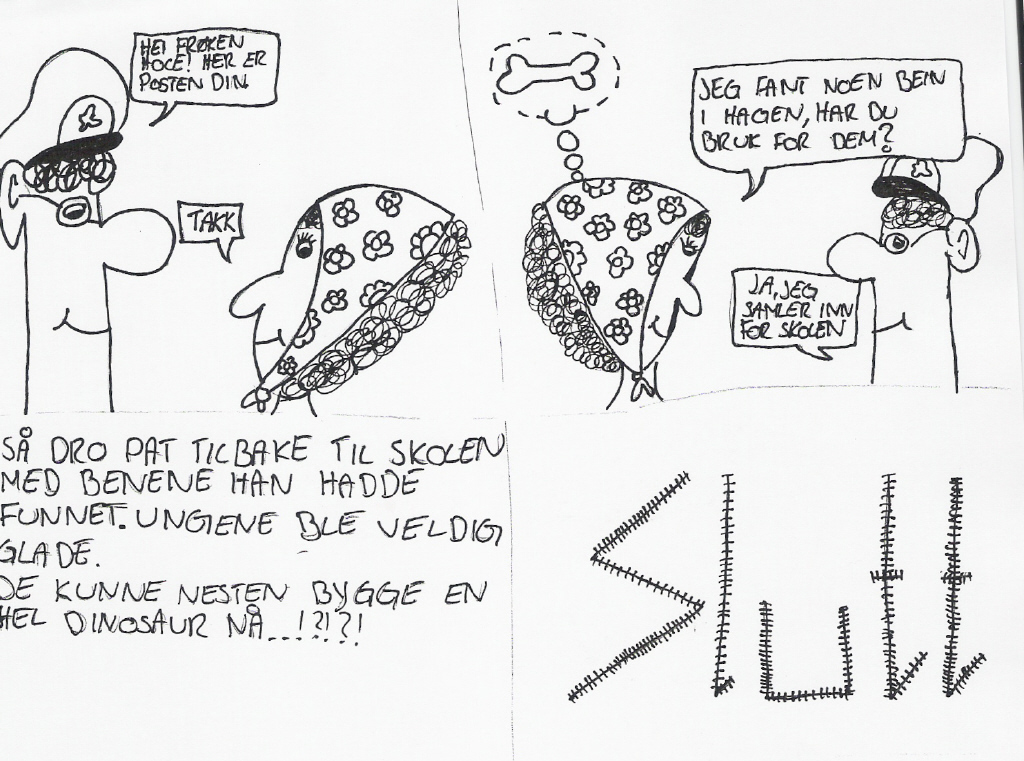 HEI FRØKEN
HOLE! HER ER
POSTEN DIN.
TAKK
JEG FANT NOEN BEIN
I HAGEN, HAR DU
BRUK FOR DEM?
JA, JEG
SAMLER INN
FOR SKOLEN
SÅ DRO PAT TILBAKE TIL SKOLEN
MED BENENE HAN HADDE
FUNNET. UNGENE BLE VELDIG
GLADE.
DE KUNNE NESTEN BYGGE EN
HEL DINOSAUR NÅ...!?!?!
Slutt